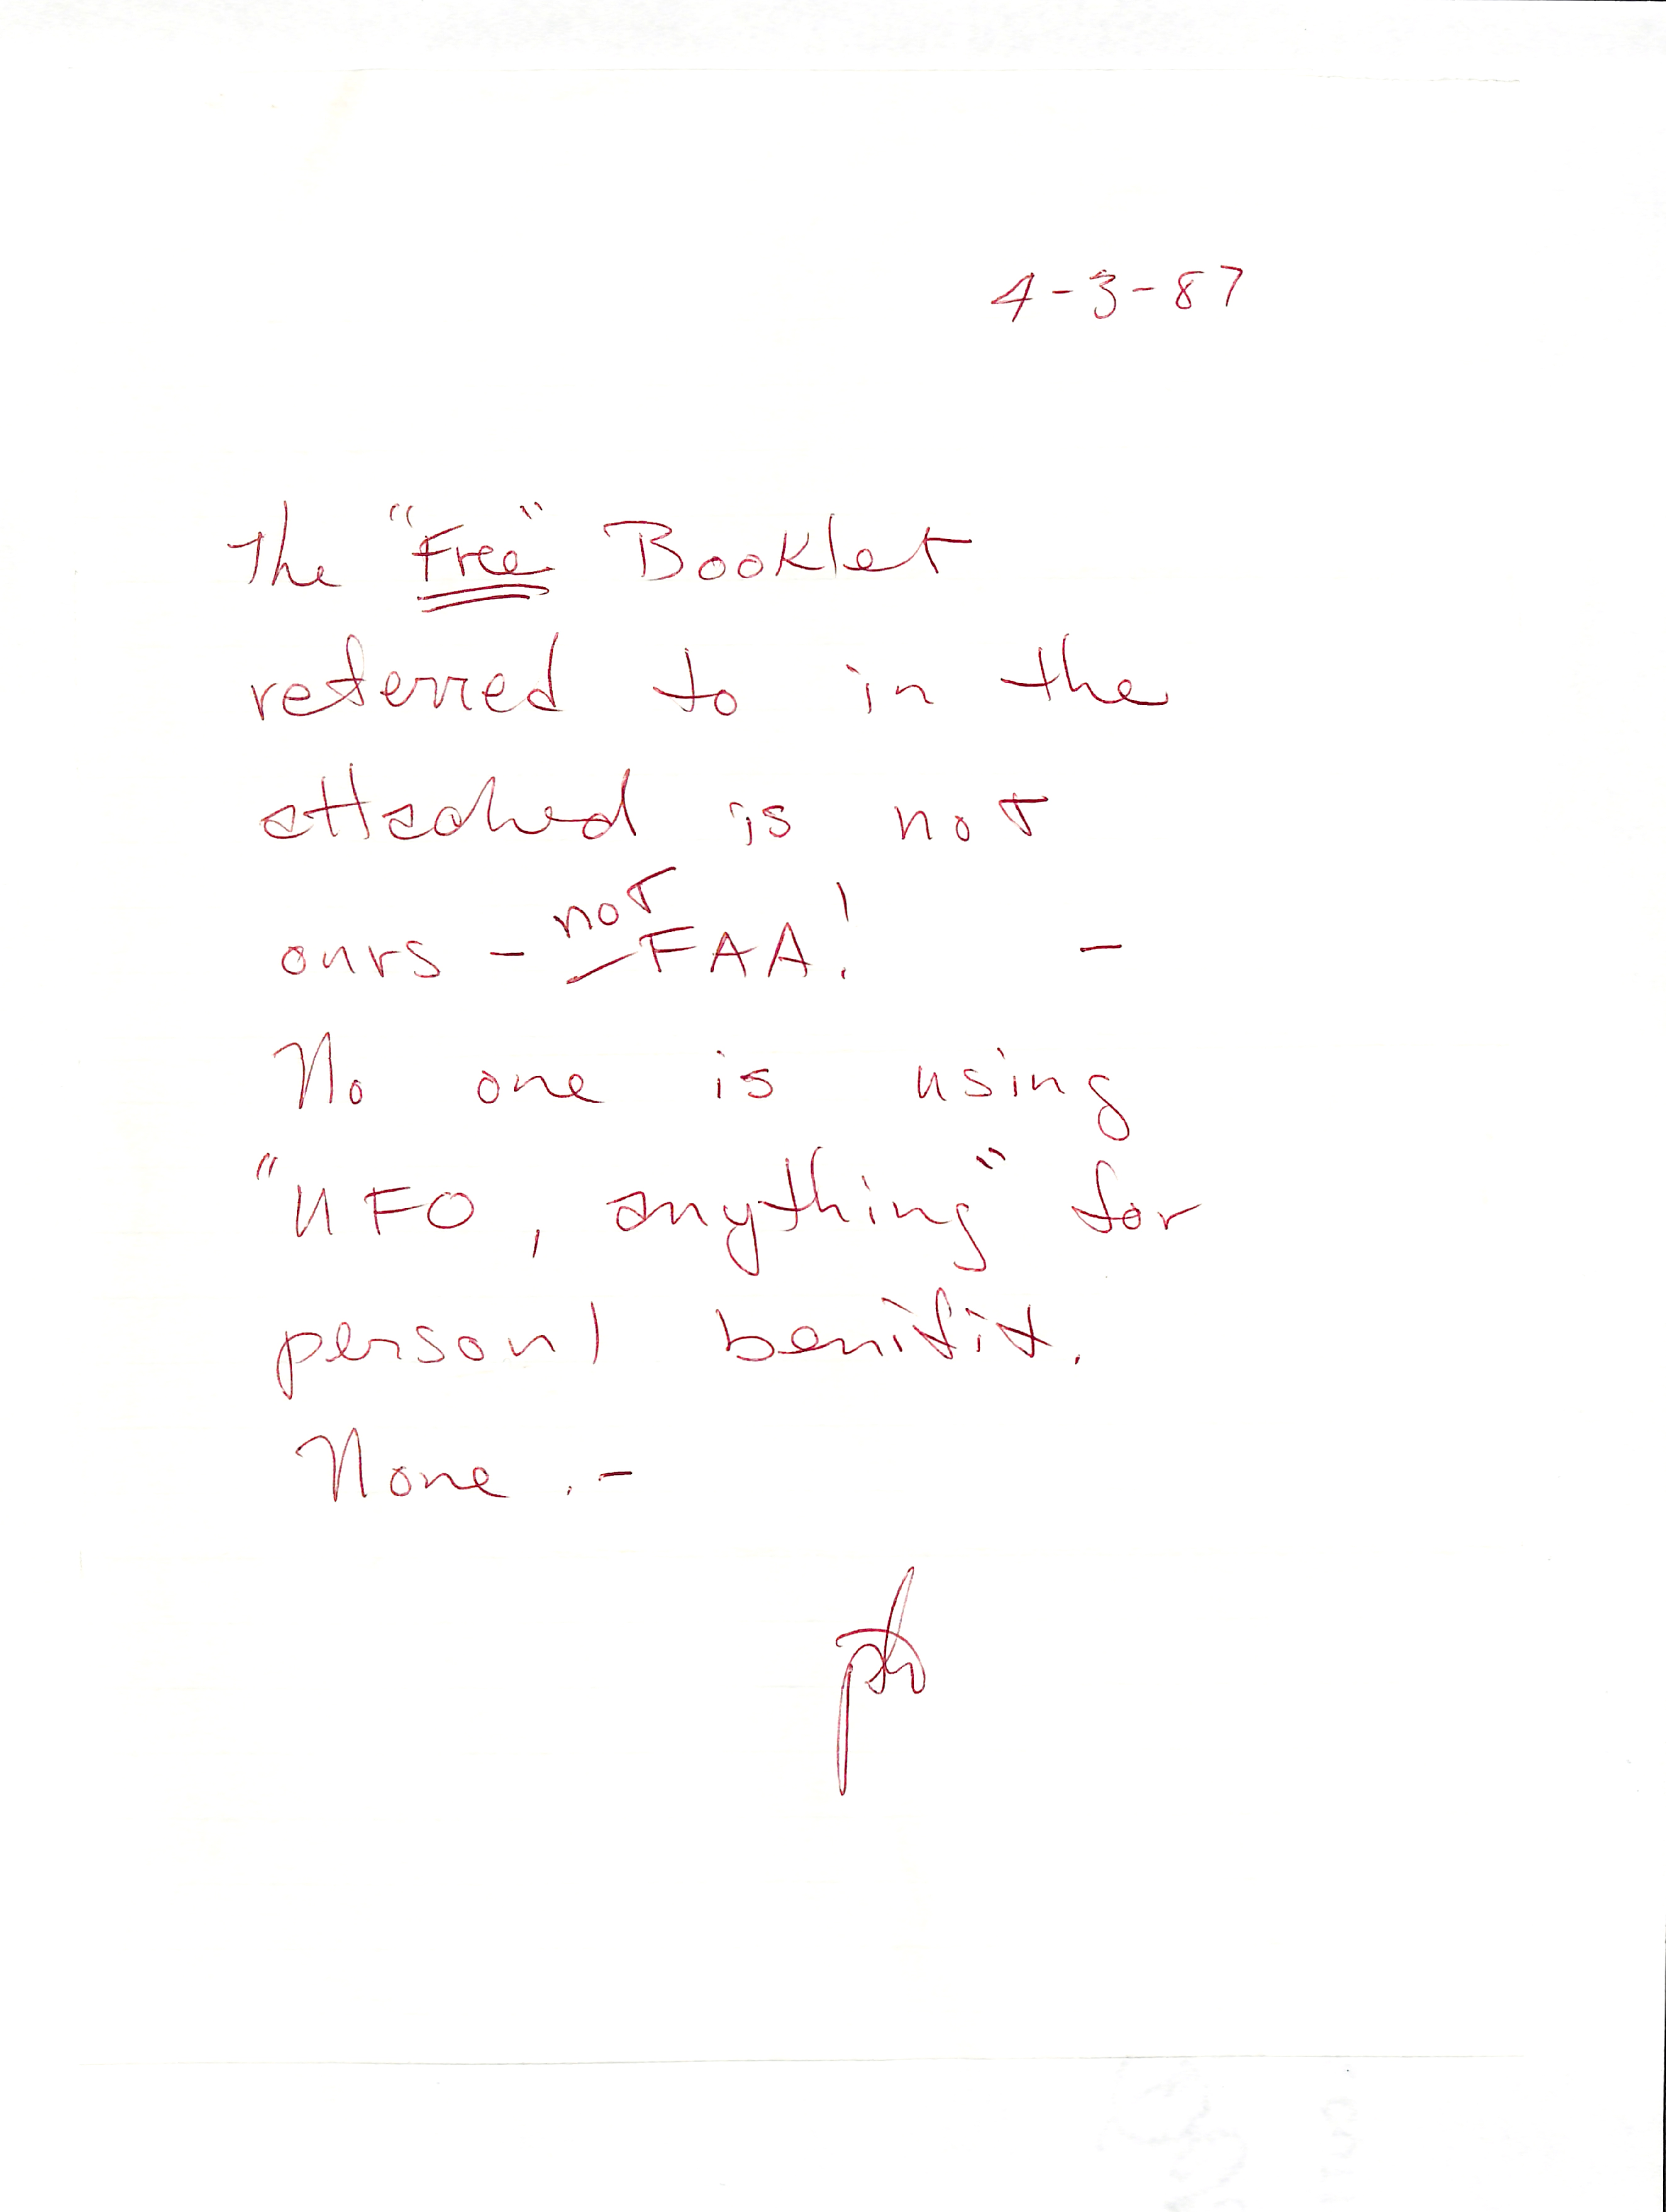 4-3-87
The "Free" Booklet
referred to in the
attached is not
ours - not FAA! -
No one is using
"UFO, anything" for
personl benifit.
None. -